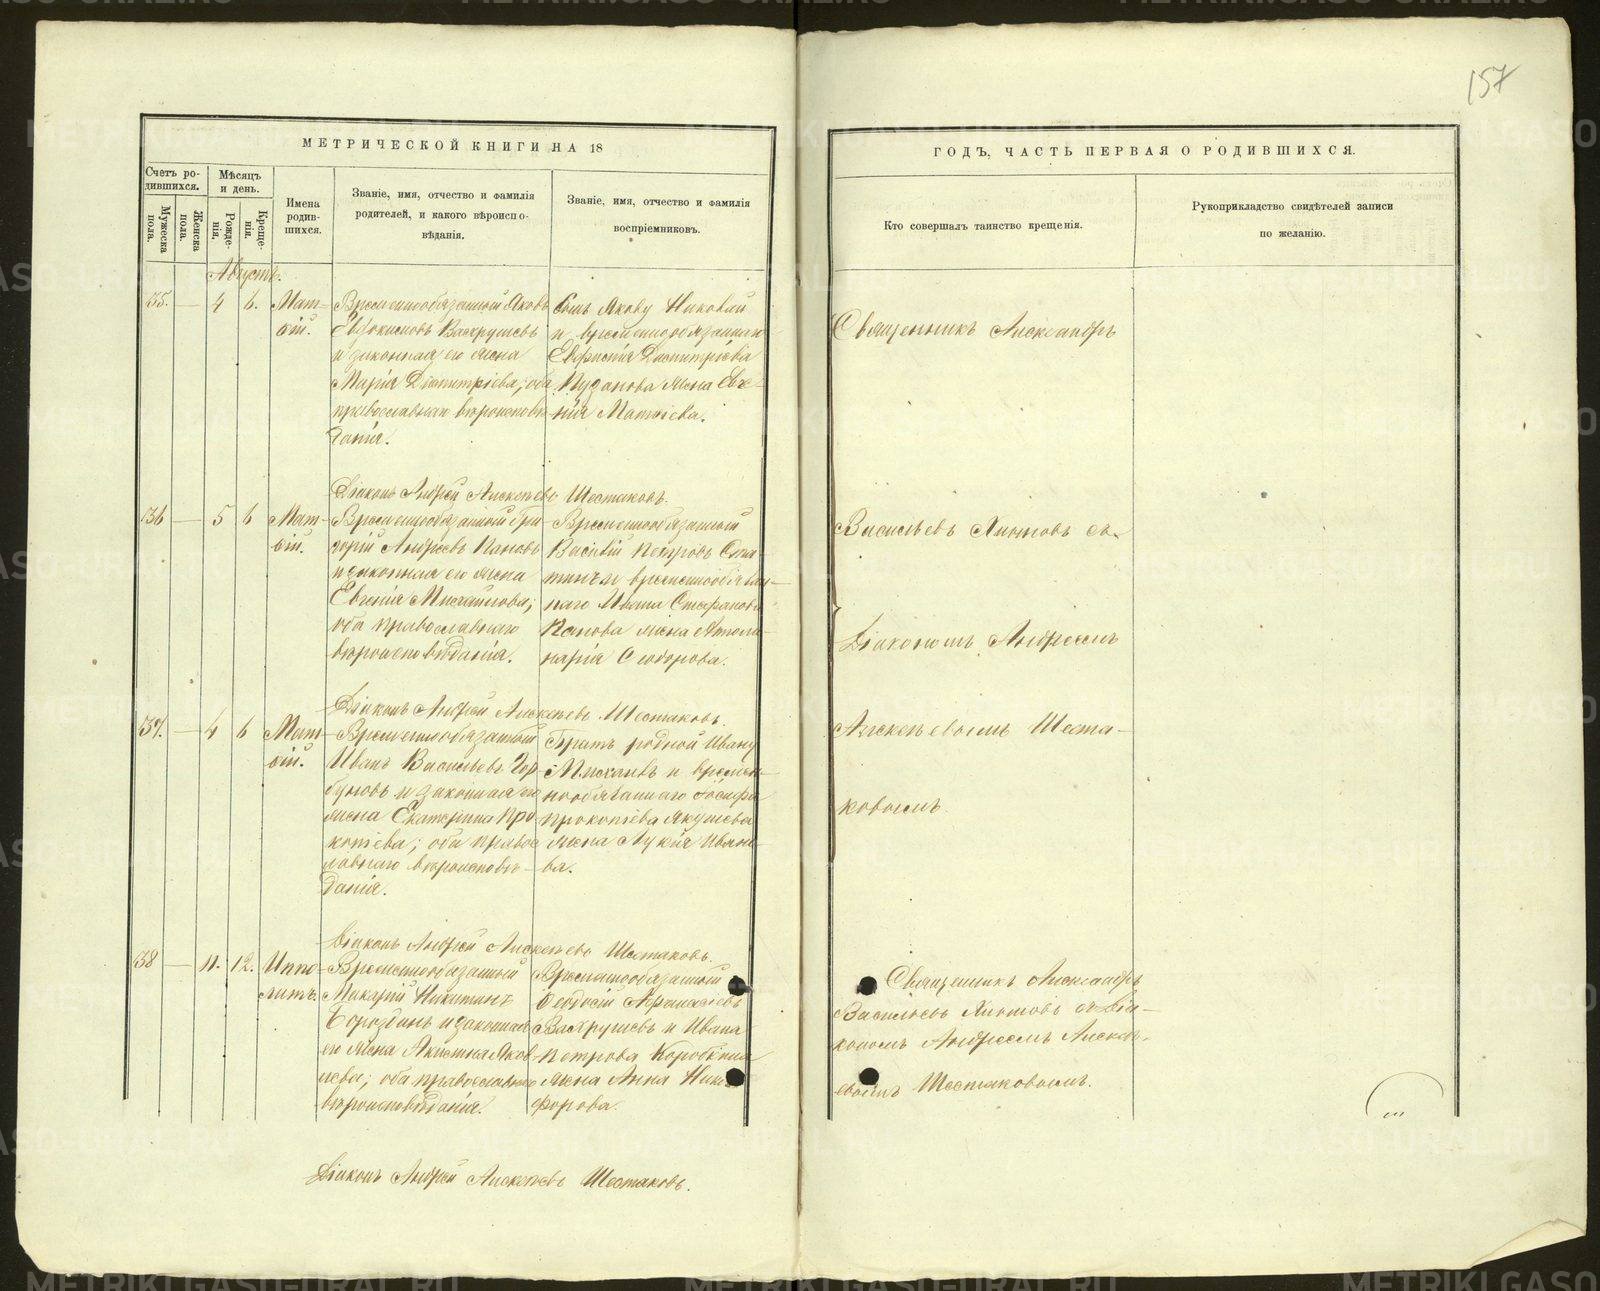 157
МЕТРИЧЕСКОЙ КНИГИ НА 18
Счетъ ро-
дившихся.
Мужеска
пола.
Женска
пола.
Мѣсяцъ
и день.
Рожде-
нія.
Креще-
нія.
Имена
родив-
шихся.
Званіе, имя, отчество и фамилія
родителей, и какого вѣроиспо-
вѣданія.
Званіе, имя, отчество и фамилія
воспріемниковъ.
Августъ.
135. — 4 6. Мат-
ѳій.
Временнообязанный Яковъ
Евдокимовъ Вахрушевъ
и законная его жена
Марія Димитріева; оба
православнаго вѣроисповѣ-
данія.
Сынъ Якову Николай
и временнообязаннаго
Димитріева
жена Евге-
нія Матѳіева.
Діаконъ Андрей Алексѣевъ Шестаковъ.
136 — 5 6 Мат-
ѳій.
Временнообязанный Гри-
горій Андреевъ Пановъ
и законная его жена
Евгенія Михайлова;
оба православнаго
вѣроисповѣданія.
Временнообязанный
Василій Петровъ
и временнообязан-
наго Ивана Стефанова
Панова жена Аполи-
нарія Ѳеодорова.
Діаконъ Андрей Алексѣевъ Шестаковъ.
137. — 4 6 Мат-
ѳій.
Временнообязанный
Иванъ Васильевъ Гор-
буновъ и законная его
жена Екатерина Про-
копіева; оба правос-
лавнаго вѣроисповѣ-
данія.
Братъ родной Ивану
Михаилъ и времен-
нообязаннаго Іосифа
Прокопіева Якушева
жена Лукія Ивано-
ва.
Діаконъ Андрей Алексѣевъ Шестаковъ.
138 — 11. 12. Иппо-
литъ.
Временнообязанный
Макарій Никитинъ
Бороздинъ и законная
его жена Акилина Яков-
лева; оба православнаго
вѣроисповѣданія.
Временнообязанный
Ѳеодосій Афанасіевъ
Вахрушевъ и Ивана
Петрова Коробкина
жена Анна Ники-
форова.
Діаконъ Андрей Алексѣевъ Шестаковъ.
ГОДЪ, ЧАСТЬ ПЕРВАЯ О РОДИВШИХСЯ.
Кто совершалъ таинство крещенія.
Рукоприкладство свидѣтелей записи
по желанію.
Священникъ Александръ
Васильевъ Хлыновъ съ
Діакономъ Андреемъ
Алексѣевымъ Шеста-
ковымъ.
Священникъ Александръ
Васильевъ Хлыновъ съ Діа-
кономъ Андреемъ Алексѣ-
евымъ Шестаковымъ.
METRIKI.GASO-URAL.RU